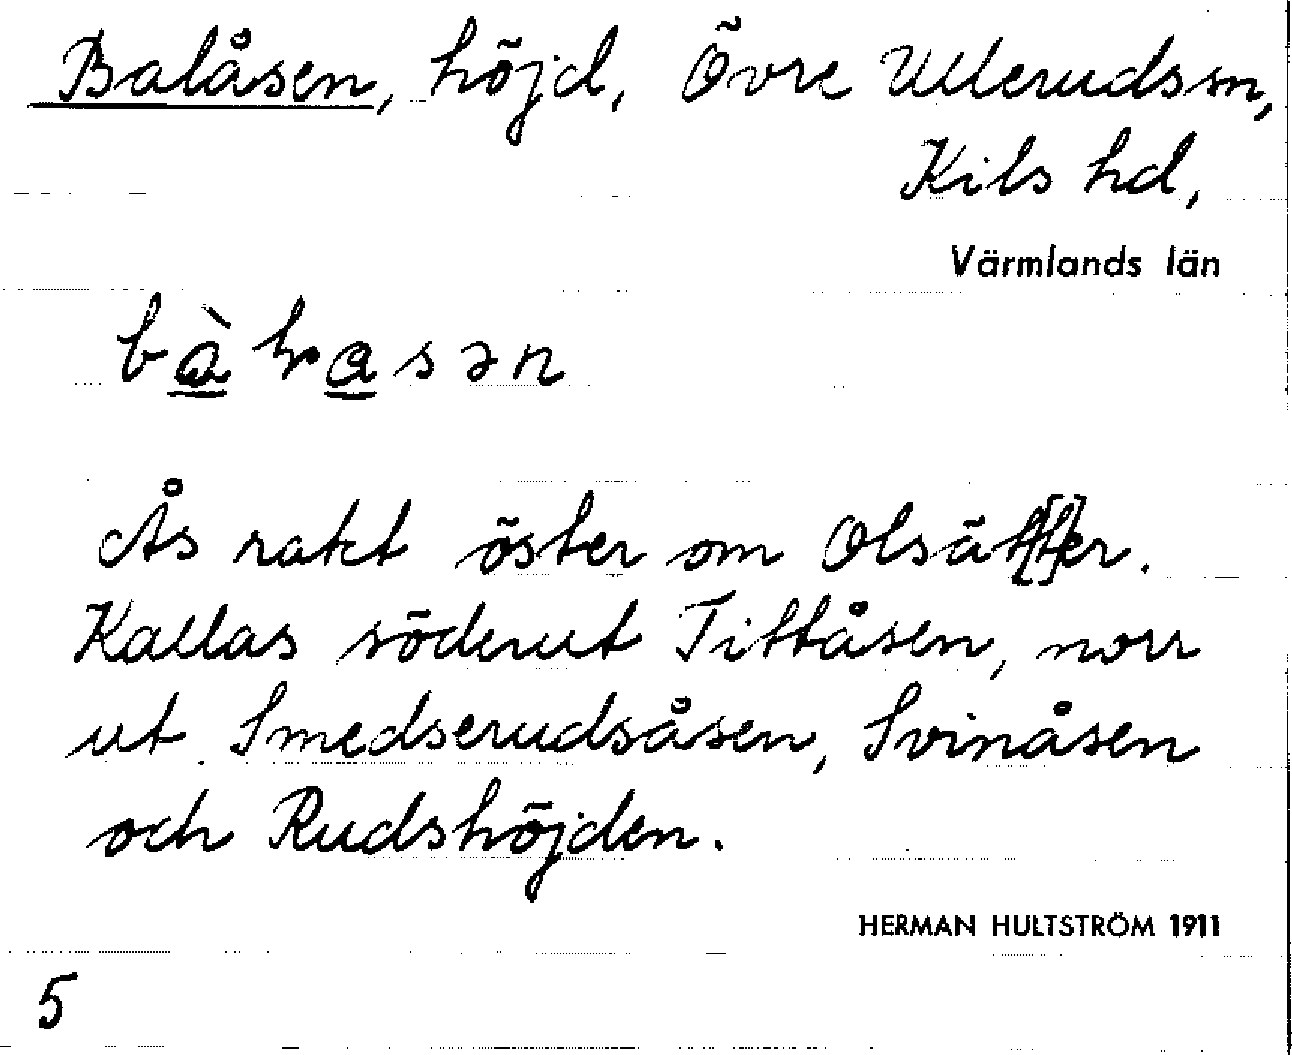 Balåsen, höjd, Övre Ullerudsm,
Kils hd,
Värmlands län
Ås rakt öster om Olsät[t]er.
Kallas söderut Tittåsen, norr
ut Smedserudsåsen, Svinåsen
och Rudshöjden.
HERMAN HULTSTRÖM 1911
5